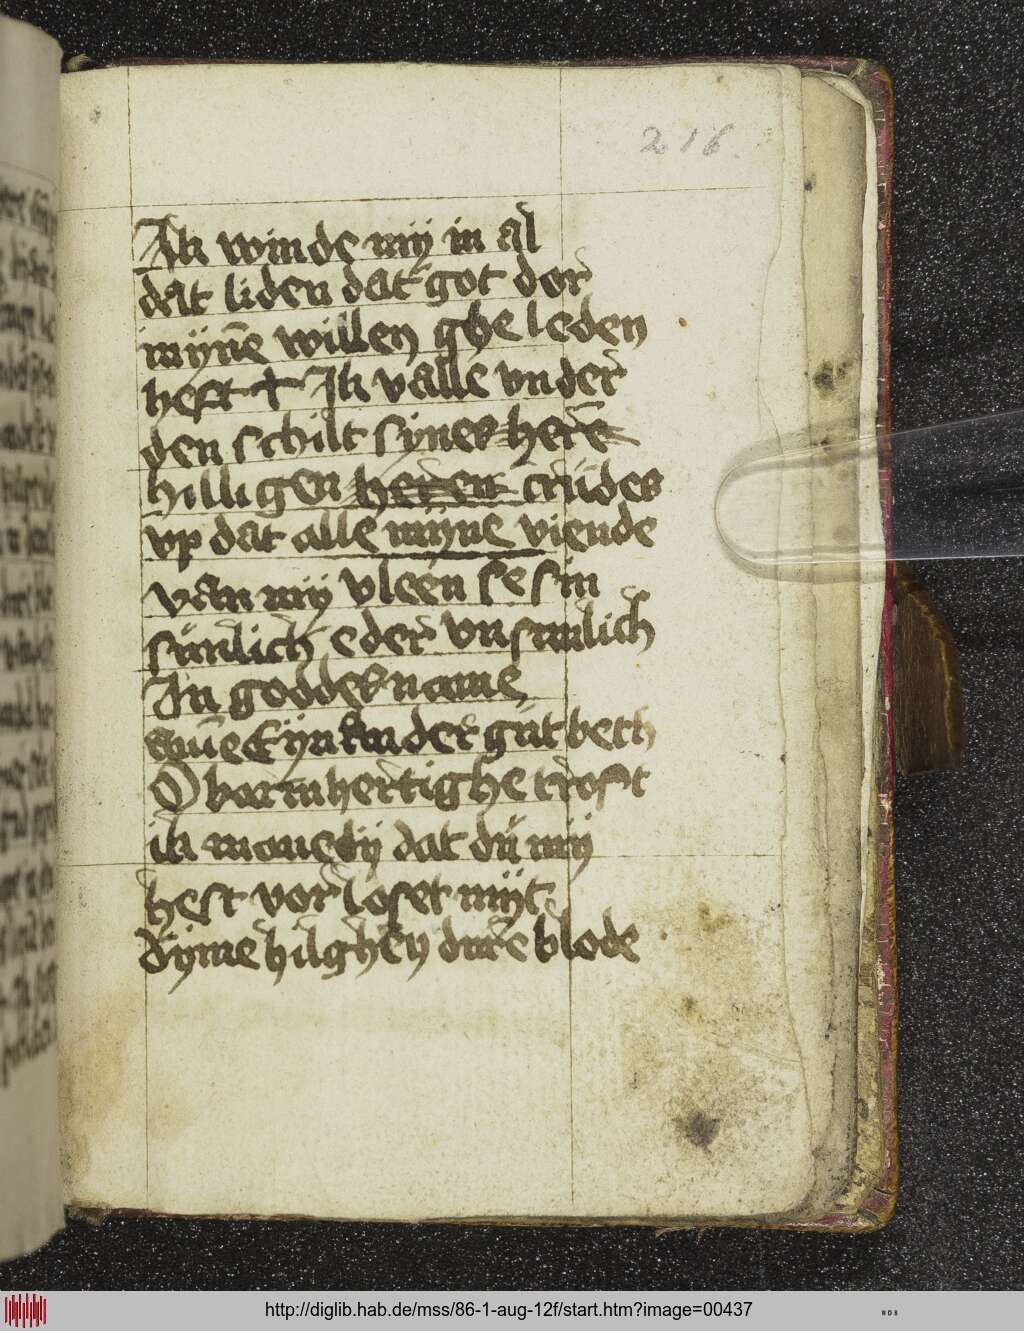 216
Ik winde mij in al
dat liden dat got dor
mÿnē willen ghe leden
heft + Ik valle vnder
den schilt synes herē
hilligen heren crüdes
vp dat alle mÿne viende
van mij vleen se sin
sünlich eder vnsunlich
In goddes name
Eÿn kinder güt beth
O barmhertighe trost
ik mone dÿ dat dü mÿ
hest vorloset mÿt
dÿme hilghen dure blode
http://diglib.hab.de/mss/86-1-aug-12f/start.htm?image=00437